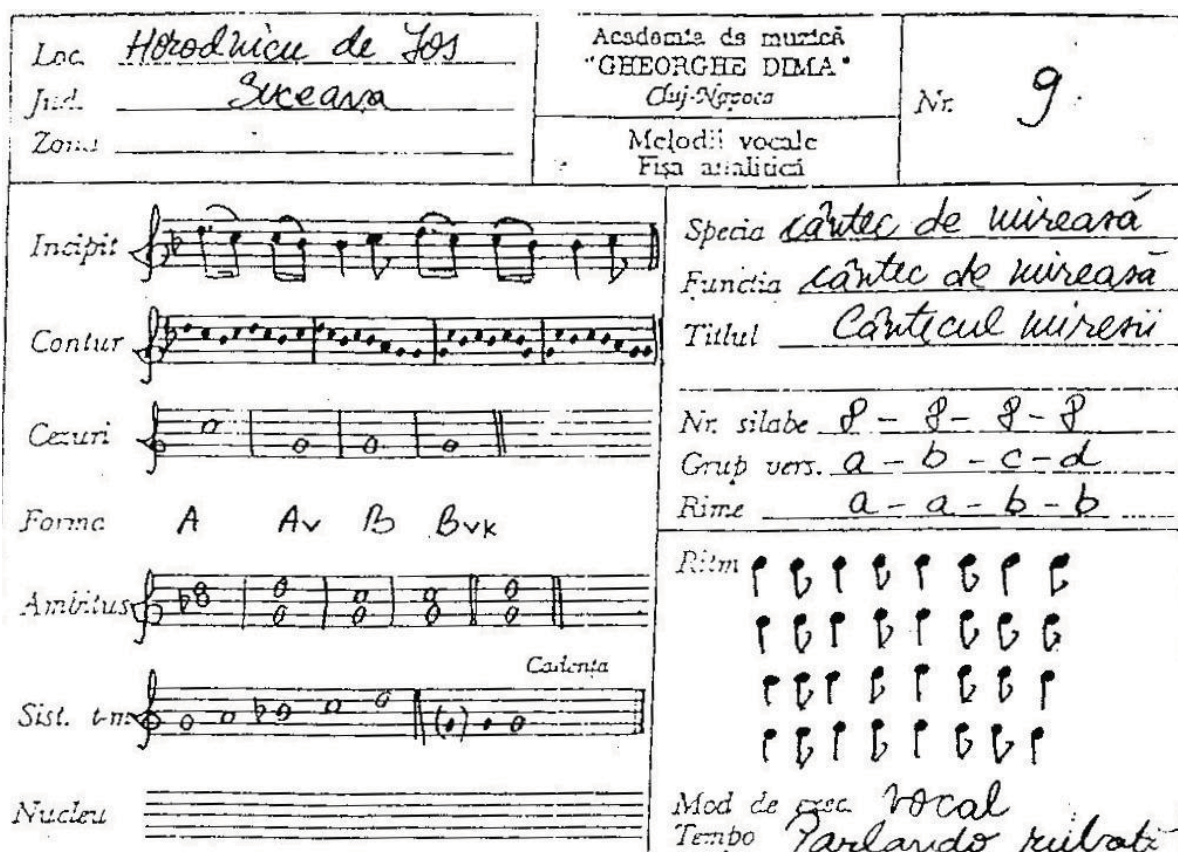 Loc. Horodnicu de Jos
Jud. Suceava
Zona
Academia de muzică
"GHEORGHE DIMA"
Cluj-Napoca
Melodii vocale
Fișa analitică
Nr. 9
Incipit
Contur
Cezuri
Forma A Av B Bvk
Ambitus
Cadența
Sist. t-m
Nucleu
Specia cântec de mireasă
Funcția cântec de mireasă
Titlul Cântecul miresii
Nr. silabe 8 - 8 - 8 - 8
Grup vers. a - b - c - d
Rime a - a - b - b
Ritm
Mod de exec. vocal
Tempo Parlando rubato